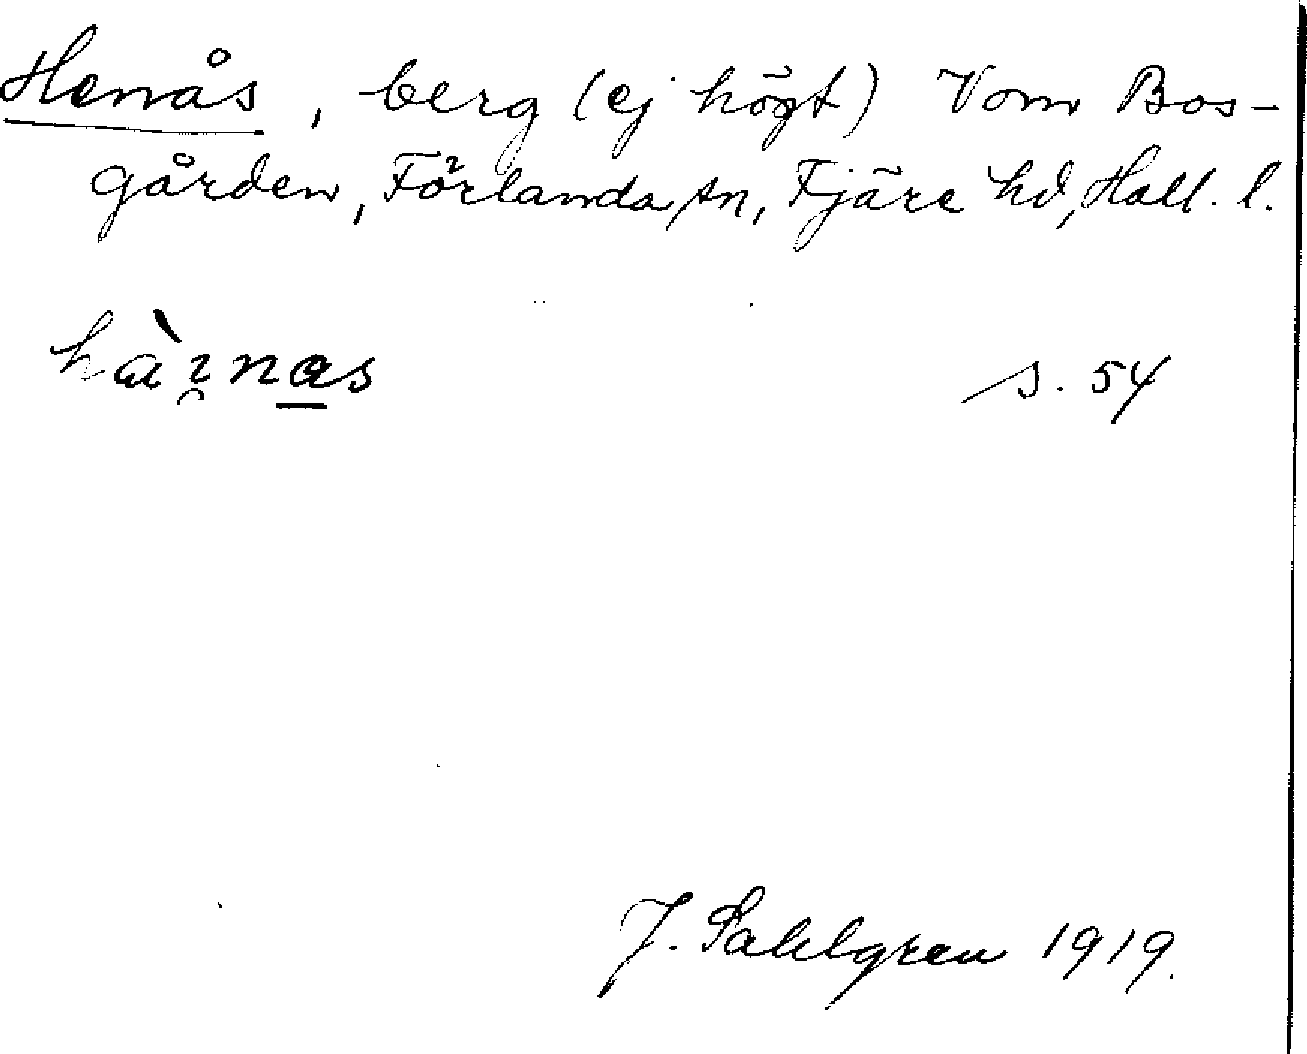 Henås, berg (ej högt) Vom Bos-
gården, Förlanda sn, Fjäre hd, Hall. l.
s. 54
J. Sahlgren 1919.